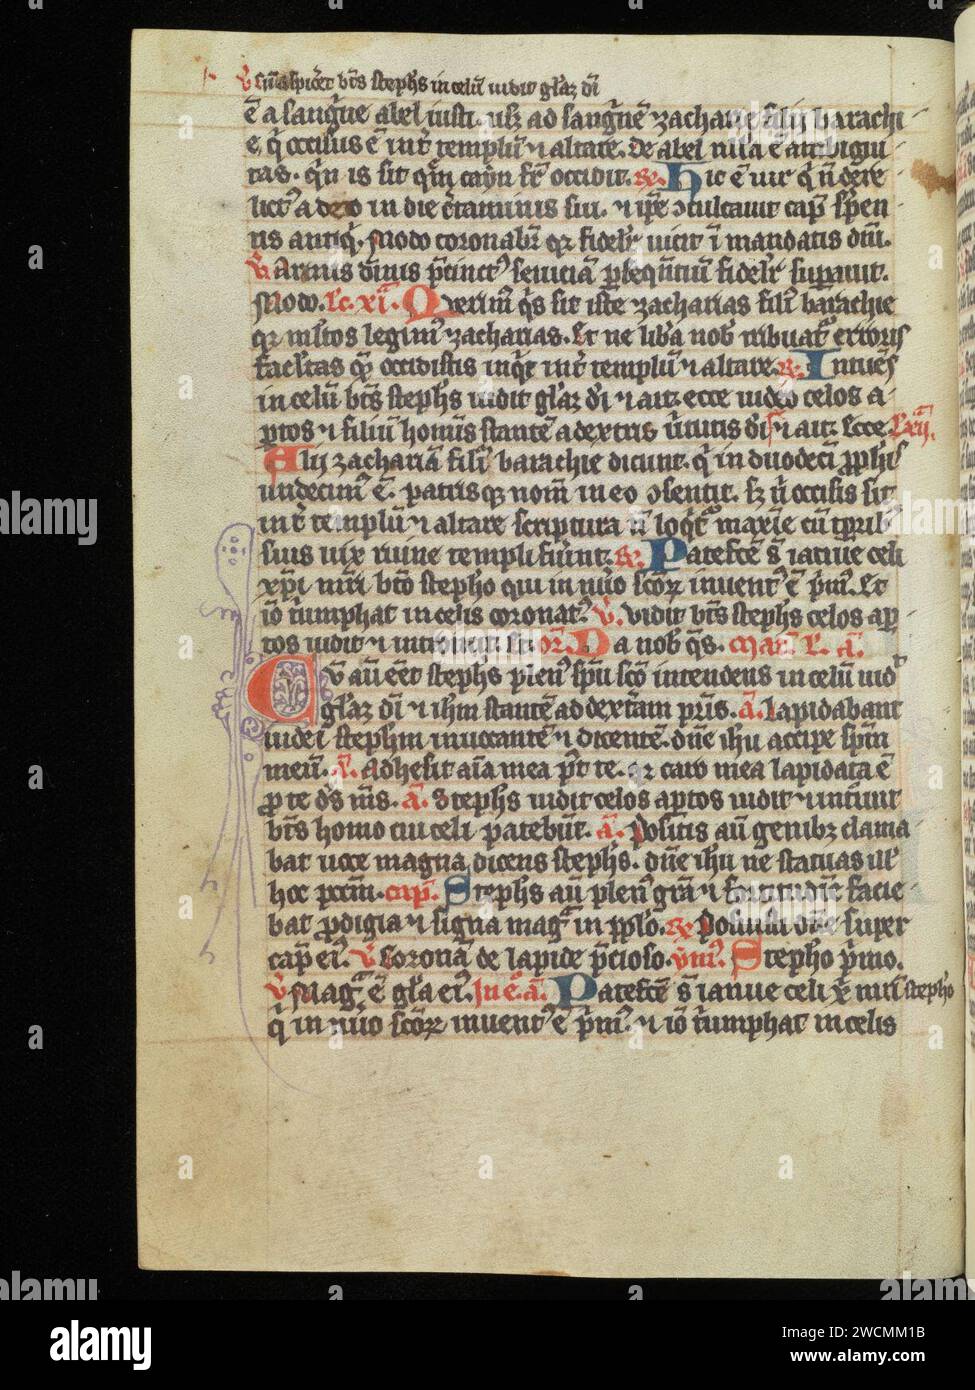 V Cu̅ aspic̅et bt̅s steph9 in celu̅ uidit gl̅az di̅
e̅ a sangue̅ abel iusti. usq; ad sangue̅ zacharie filij barachi
e. q̅ occisus e̅ int̅ templu̅ ⁊ altare. de abel nlla e̅ ambigui
tas. qn̅ is sit que̅ cayn fr̅ occidit. R. Hic e̅ uir q̅ n̅ dere
lict9 a deo in die c̅taminis sui. ⁊ ip̅e ꝯculcauit cap̅ s̅pen
tis antiq̅. modo coronabr̅ qr fidelr̅ uicit i̅ mandatis dn̅i.
V. Armis diuis p̅cinct9 seuicia̅ p̅seque̅tiu̅ fidelr̅ supauit.
Modo. Lc̅. xi̅. Querim9 q̅s sit iste zacharias fili9 barachie
qr ml̅tos legim9 zacharias. Et ne lib̅a nob̅ tribuat̅ erroris
facl̅tas que̅ occidistis inq̅t int̅ templu̅ ⁊ altare. R. Intue̅s
in celu̅ bt̅s steph9 uidit gl̅az di̅ ⁊ ait. ecce uideo celos a
p̅tos ⁊ filiu̅ hoi̅s stante̅ a dextris u̅tutis di̅ ⁊ ait. Ecce. Lc̅ xij.
Alij zacharia̅ filiu̅ barachie dicunt. q̅ in duodeci̅ p̅phis
undecim9 e̅. patrisq; nom̅ in eo ꝯsentit. sz u̅ occisis sit
int̅ templu̅ ⁊ altare scriptura n̅ loq̅t̅ maxi̅e cu̅ t̅prib9
suis uix ruine templi fueri̅t. R. Patefce̅ s̅ ianue celi
xp̅i mr̅i bt̅o stepho qui in nu̅o sc̅or̅ inuent9 e̅ p̅m9. Et
io̅ t̅umphat in celis coronat9. V. Vidit bt̅s steph9 celos ap̅
tos uidit ⁊ introiuit. Et. or̅. Da nob̅ q̅s. Mat̅. L. a̅.
Cu̅ aut̅ eet steph9 plen9 sp̅u sc̅o intendens in celu̅ uid̅
gl̅az di̅ ⁊ ih̅m stante̅ ad dext̅am pr̅is. a̅. Lapidabant
iudei steph̅m inuocante̅ ⁊ dicente̅. dn̅e ih̅u accipe sp̅m
meu̅. a̅. Adhesit ai̅a mea p̅t te. qr caro mea lapidata e̅
p̅ te d̅s m̅s. a̅. Steph9 uidit celos ap̅tos uidit ⁊ int̅uit
bt̅s homo cui celi patebu̅t. a̅. Positis au̅ genib; clama
bat uoce magna dicens steph9. dn̅e ih̅u ne statuas ill̅
hoc pcc̅m. cap̅. Steph9 au̅ plen9 gr̅a ⁊ fortitudi̅e facie
bat p̅digia ⁊ signa mag̅ in pp̅lo. R. Posuisti dn̅e super
cap̅ ei9. V Corona̅ de lapide p̅cioso. ym̅9. Stepho p̅mo.
V Mag̅ e̅ gl̅a ei9. In e̅. a̅. Patefce̅ s̅ ianue celi x̅ mr̅i stepho
q̅ in nu̅o sc̅or̅ inuent9 e̅ p̅m9. ⁊ io̅ t̅umphat in celis
alamy
Image ID: 2WCMM1B
www.alamy.com